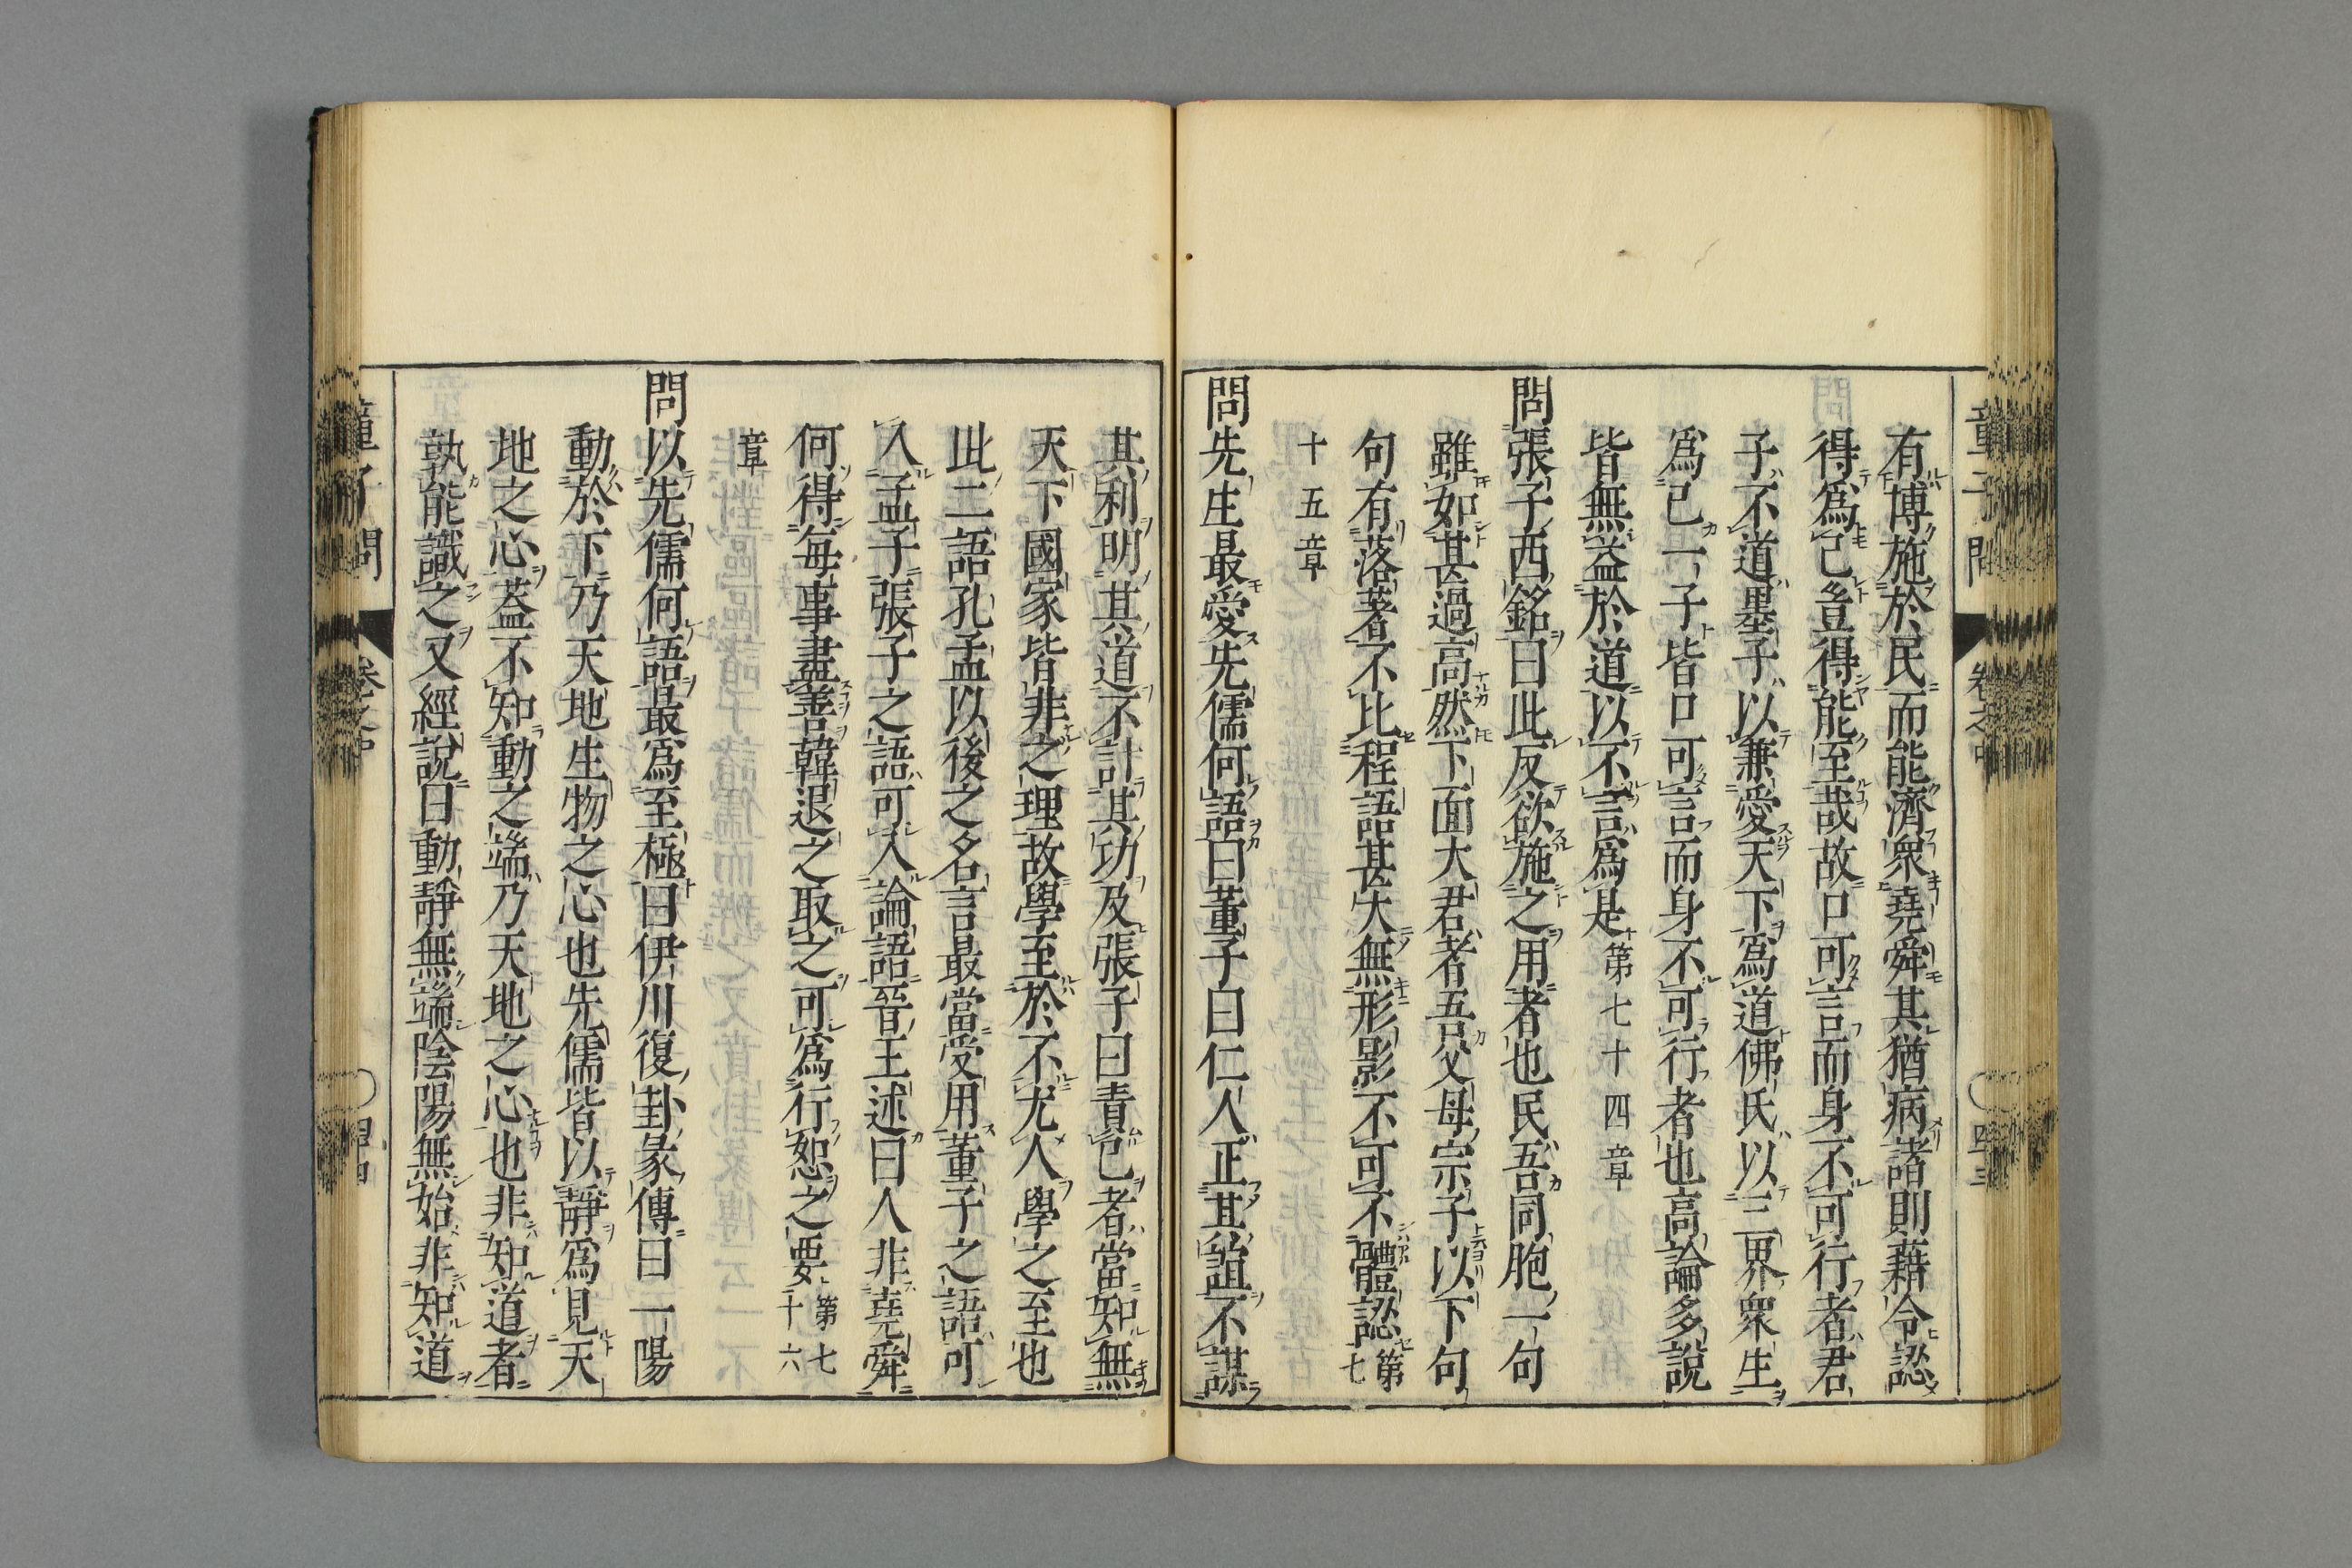 有博施於民而能濟衆堯舜其猶病諸則藉令認
得爲己豈得能至哉故口可言而身不可行者君
子不道墨子以兼愛天下爲道佛氏以三界衆生
爲己一子皆口可言而身不可行者也高論多說
皆無益於道以不言爲是第七十四章
問張子西銘曰此反欲施之用者也民吾同胞一句
雖如甚過高然下面大君者吾父母宗子以下句
句有落著不比程語甚大無形影不可不體認第七
十五章
問先生最愛先儒何語曰董子曰仁人正其誼不謀
其利明其道不計其功及張子曰責己者當知無
天下國家皆非之理故學至於不尤人學之至也
此二語孔孟以後之名言最當受用董子之語可
入孟子張子之語可入論語晉王述曰人非堯舜
何得每事盡善韓退之取之可爲行恕之要第七十六
章
問以先儒何語最爲至極曰伊川復卦彖傳曰一陽
動於下乃天地生物之心也先儒皆以靜爲見天
地之心蓋不知動之端乃天地之心也非知道者
孰能識之又經說曰動靜無端陰陽無始非知道
童子問
卷之中
四三
童子問
卷之中